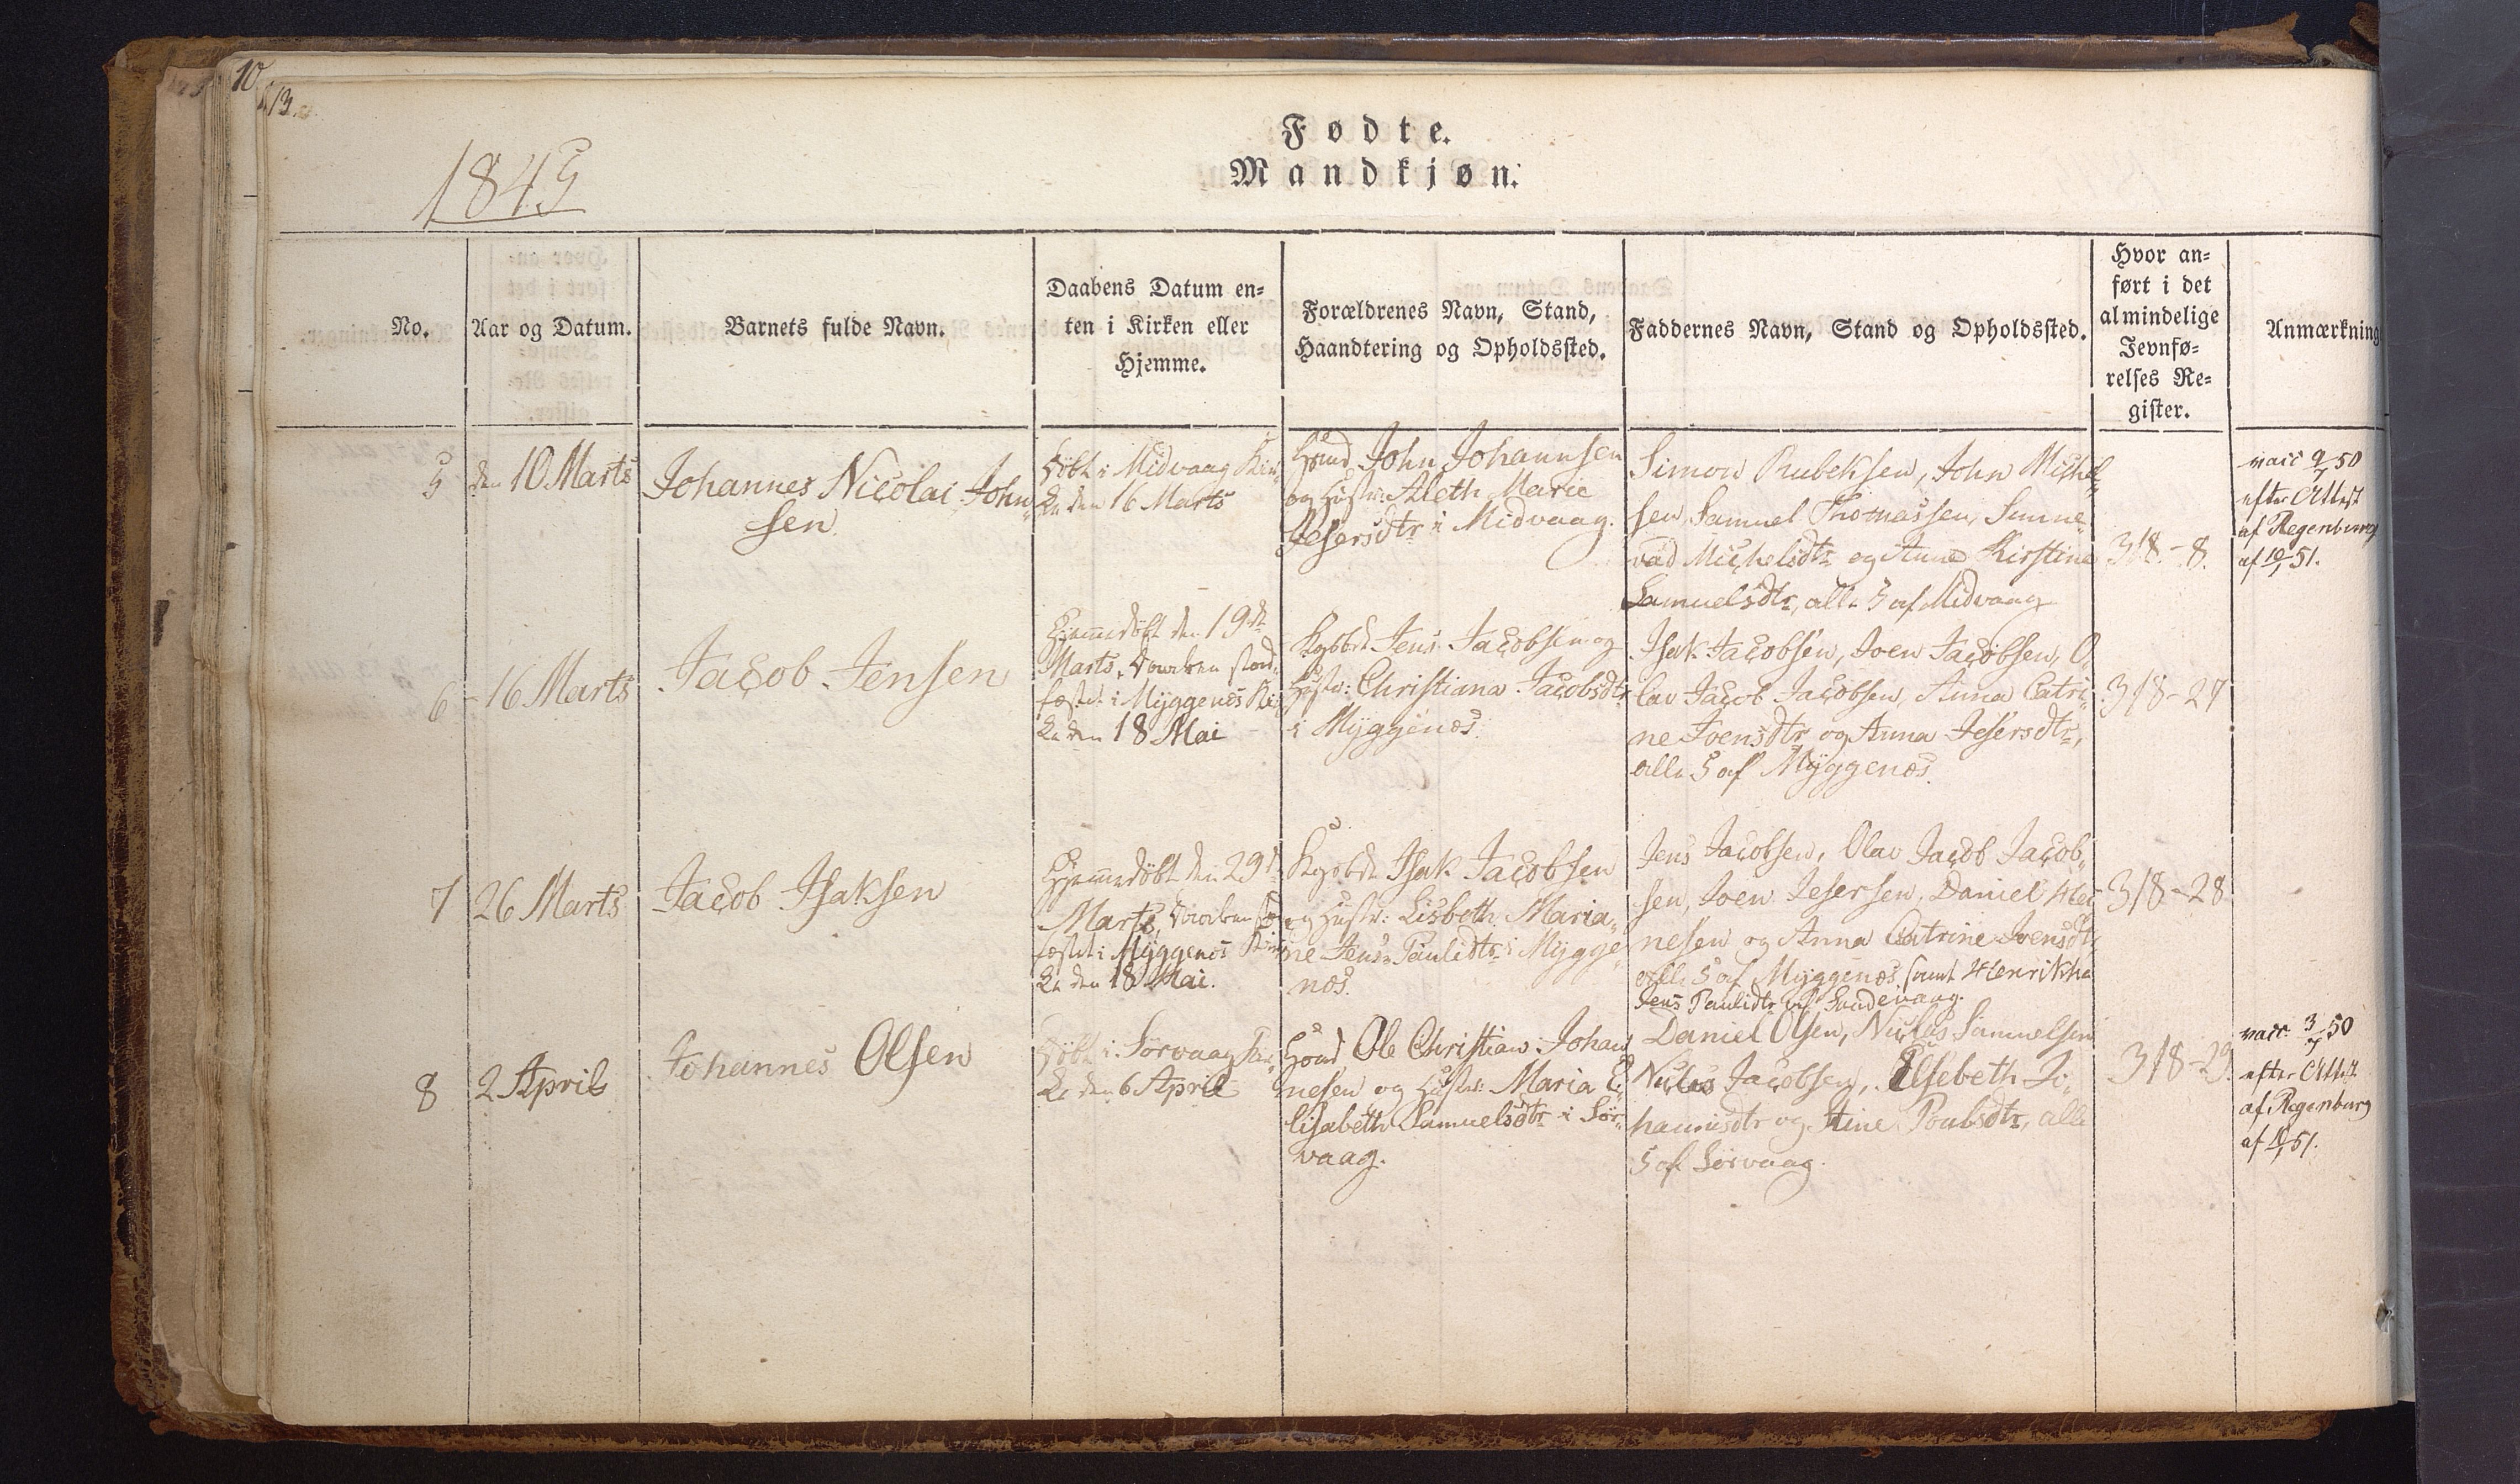 10
13.
Fødte.
Mandkjøn.
1845
No.
Aar og Datum.
Barnets fulde Navn.
Daabens Datum en=
ten i Kirken eller
Hjemme.
Forældrenes Navn, Stand,
Haandtering og Opholdssted.
Faddernes Navn, Stand og Opholdssted.
Hvor an=
ført i det
almindelige
Jevnfø=
relses Re=
gister.
Anmærkning
5
den 10 Marts
Johannes Nicolai John„
sen
Døbt i Midvaag Kir„
ke den 16 Marts
John Johannsen
og Hustr: Aleth Marie
Jesersdtr i Midvaag.
Simon Rubeksen, John Michel„
sen, Samuel Thomassen, Sunne„
vad Michelsdtr og Anne Kirstine
Samuelsdtr, alle 5 af Midvaag
318-8.
vacc 9/7 50
efter Attest
af Regenburg
af 10/1 51.
6
16 Marts
Jacob Jensen
Hjemmedøbt den 19de
Marts, Daaben stad„
fæstet i Myggenæs Kir„
ke den 18 Mai
Jens Jacobsen og
Hustr: Christiana Jacobsdtr
i Myggenæs.
Isak Jacobsen, Joen Jacobsen, O„
lav Jacob Jacobsen, Anna Catri„
ne Joensdtr og Anna Jesersdtr,
alle 5 af Myggenæs.
318-27
7
26 Marts
Jacob Isaksen
Hjemmedøbt den 29de
Marts, Daaben
fæstet i Myggenæs Kir„
ke den 18 Mai.
Isak Jacobsen
og Hustr: Lisbeth Maria„
ne Jens Paulidtr i Mygge„
næs.
Jens Jacobsen, Olav Jacob Jacob„
sen, Joen Jesersen, Daniel Han„
nesen og Anna Catrine Joensdtr
alle 5 af Myggenæs, samt Henrikka
Jens Paulidtr af Sandevaag.
318-28
8
2 April
Johannes Olsen
Døbt i Sørvaag Kir„
ke den 6 April
Ole Christian Johan
nesen og Hustr: Maria E„
lisabeth Samuelsdtr i Sør„
vaag.
Daniel Olsen, Niclas Samuelsen
Niclas Jacobsen, Elsebeth Jo„
hannisdtr og Stine Poulsdtr, alle
5 af Sørvaag.
318-29.
vacc 3/7 50
efter Attest
af Regenburg
af 10/1 51.